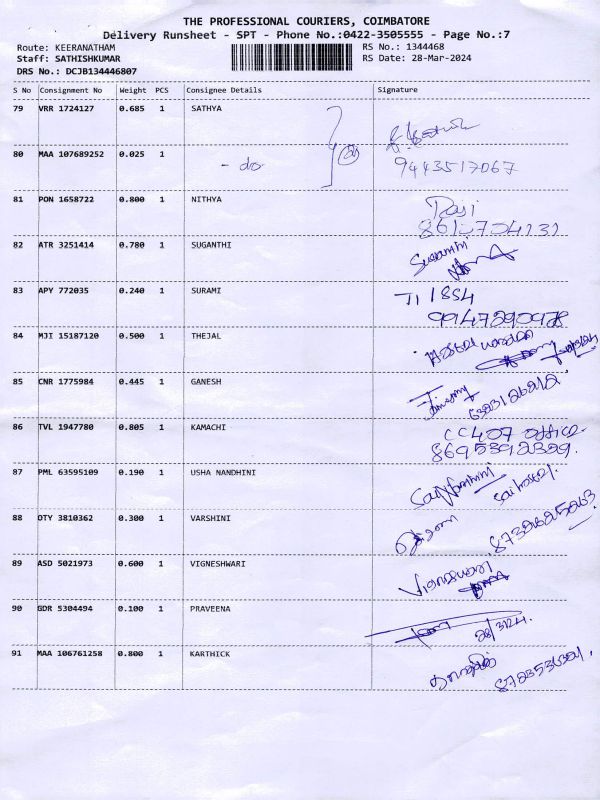 THE PROFESSIONAL COURIERS, COIMBATORE
Delivery Runsheet - SPT - Phone No.:0422-3505555 - Page No.:7
Route: KEERANATHAM RS No.: 1344468
Staff: SATHISHKUMAR RS Date: 28-Mar-2024
DRS No.: DCJB134446807
S No Consignment No Weight PCS Consignee Details Signature
79 VRR 1724127 0.685 1 SATHYA
80 MAA 107689252 0.025 1 - do - 9443517067
81 PON 1658722 0.800 1 NITHYA
82 ATR 3251414 0.780 1 SUGANTHI Suganthi
83 APY 772035 0.240 1 SURAMI
84 MJI 15187120 0.500 1 THEJAL
85 CNR 1775984 0.445 1 GANESH
86 TVL 1947780 0.805 1 KAMACHI office
8695392359.
87 PML 63595109 0.190 1 USHA NANDHINI
88 OTY 3810362 0.300 1 VARSHINI
89 ASD 5021973 0.600 1 VIGNESHWARI Vigneshwari
90 GDR 5304494 0.100 1 PRAVEENA 28/3/24.
91 MAA 106761258 0.800 1 KARTHICK